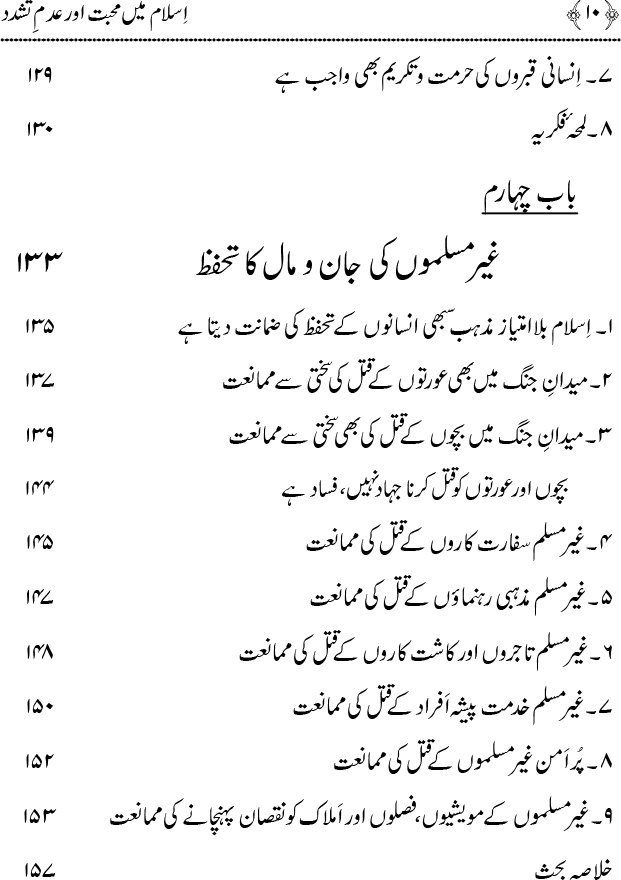 ﴿۱۰﴾ اِسلام میں محبت اور عدمِ تشدد
۷۔ اِنسانی قبروں کی حرمت و تکریم بھی واجب ہے ۱۲۹
۸۔ لمحۂ فکریہ ۱۳۰
باب چہارم
غیر مسلموں کی جان و مال کا تحفظ ۱۳۳
۱۔ اِسلام بلا امتیاز مذہب سبھی انسانوں کے تحفظ کی ضمانت دیتا ہے ۱۳۵
۲۔ میدانِ جنگ میں بھی عورتوں کے قتل کی سختی سے ممانعت ۱۳۷
۳۔ میدانِ جنگ میں بچوں کے قتل کی بھی سختی سے ممانعت ۱۳۹
بچوں اور عورتوں کو قتل کرنا جہاد نہیں، فساد ہے ۱۴۴
۴۔ غیر مسلم سفارت کاروں کے قتل کی ممانعت ۱۴۵
۵۔ غیر مسلم مذہبی رہنماؤں کے قتل کی ممانعت ۱۴۷
۶۔ غیر مسلم تاجروں اور کاشت کاروں کے قتل کی ممانعت ۱۴۸
۷۔ غیر مسلم خدمت پیشہ اَفراد کے قتل کی ممانعت ۱۵۰
۸۔ پُر اَمن غیر مسلموں کے قتل کی ممانعت ۱۵۲
۹۔ غیر مسلموں کے مویشیوں، فصلوں اور اَملاک کو نقصان پہنچانے کی ممانعت ۱۵۳
خلاصہ بحث ۱۵۷